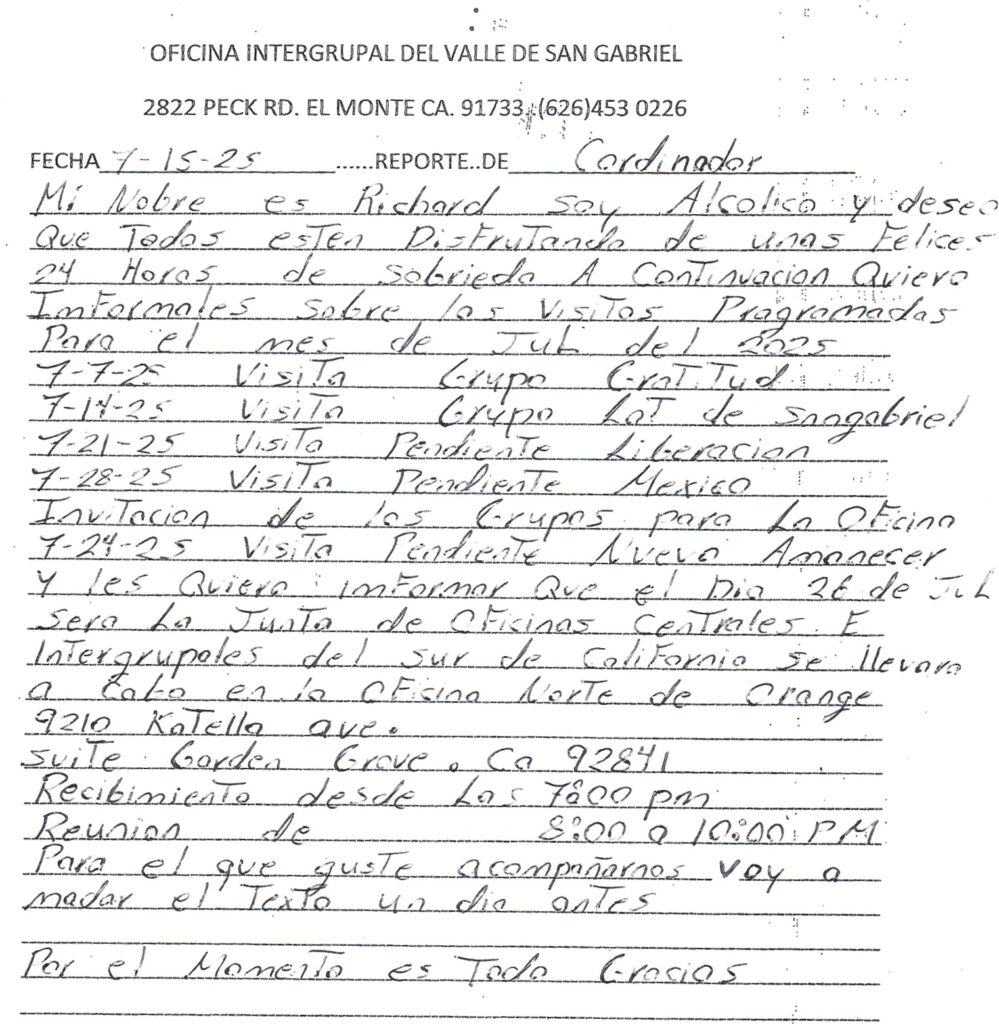 OFICINA INTERGRUPAL DEL VALLE DE SAN GABRIEL
2822 PECK RD. EL MONTE CA. 91733 .(626)453 0226
FECHA 7-15-25 ......REPORTE..DE Cordinador
Mi Nobre es Richard soy Alcolico y deseo
Que Todos esten Disfrutando de unas Felices
24 Horas de Sobrieda A Continuacion Quiero
Imformales Sobre las Visitas Programadas
Para el mes de Jul del 2025
7-7-25 Visita Grupo Gratitud
7-14-25 Visita Grupo Lat de sangabriel
7-21-25 Visita Pendiente Liberacion
7-28-25 Visita Pendiente Mexico
Invitacion de los Grupos para La Oficina
7-24-25 Visita Pendiente Nuevo Amanecer
Y les Quiero imformar Que el Dia 26 de Jul
sera La Junta de Oficinas Centrales E
Intergrupales del sur de California se llevara
a cabo en la Oficina Norte de Orange
9210 Katella ave.
suite Garden Grove. Ca 92841
Recibimiento desde Las 7:00 pm
Reunion de 8:00 a 10:00 PM
Para el que guste acompañarnos Voy a
madar el Texto un dia antes
Por el Momento es Todo Gracias